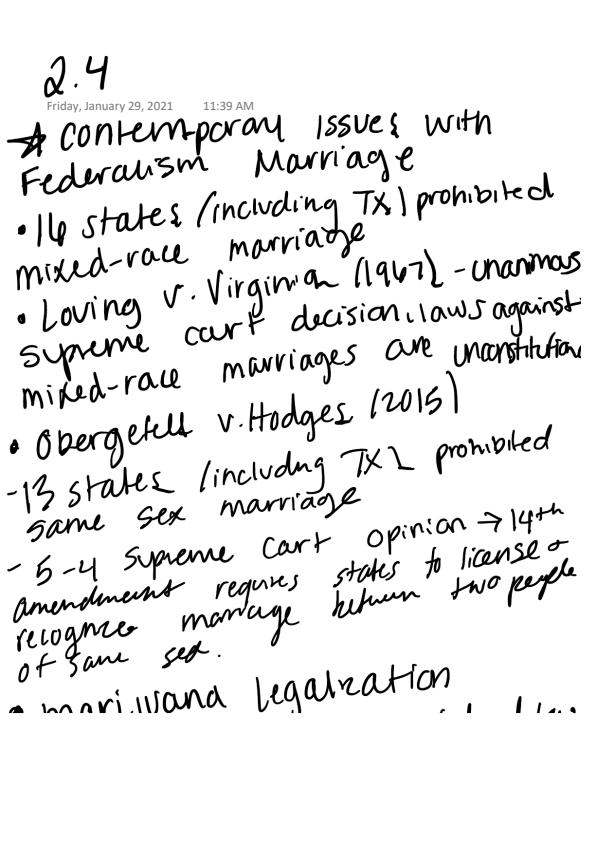 2.4
Friday, January 29, 2021 11:39 AM
☆ contemporary issues with
Federalism Marriage
• 16 states (including TX) prohibited
mixed-race marriage
• Loving v. Virginia (1967) - unanimous
supreme cart decision, laws against
mixed-race marriages are unconstitution
• Obergefell v. Hodges (2015)
- 13 states (including TX) prohibited
same sex marriage
- 5-4 Supreme Cart opinion → 14th
amendment requires states to license &
recognize marriage between two people
of same sex.
• marijuana legalization